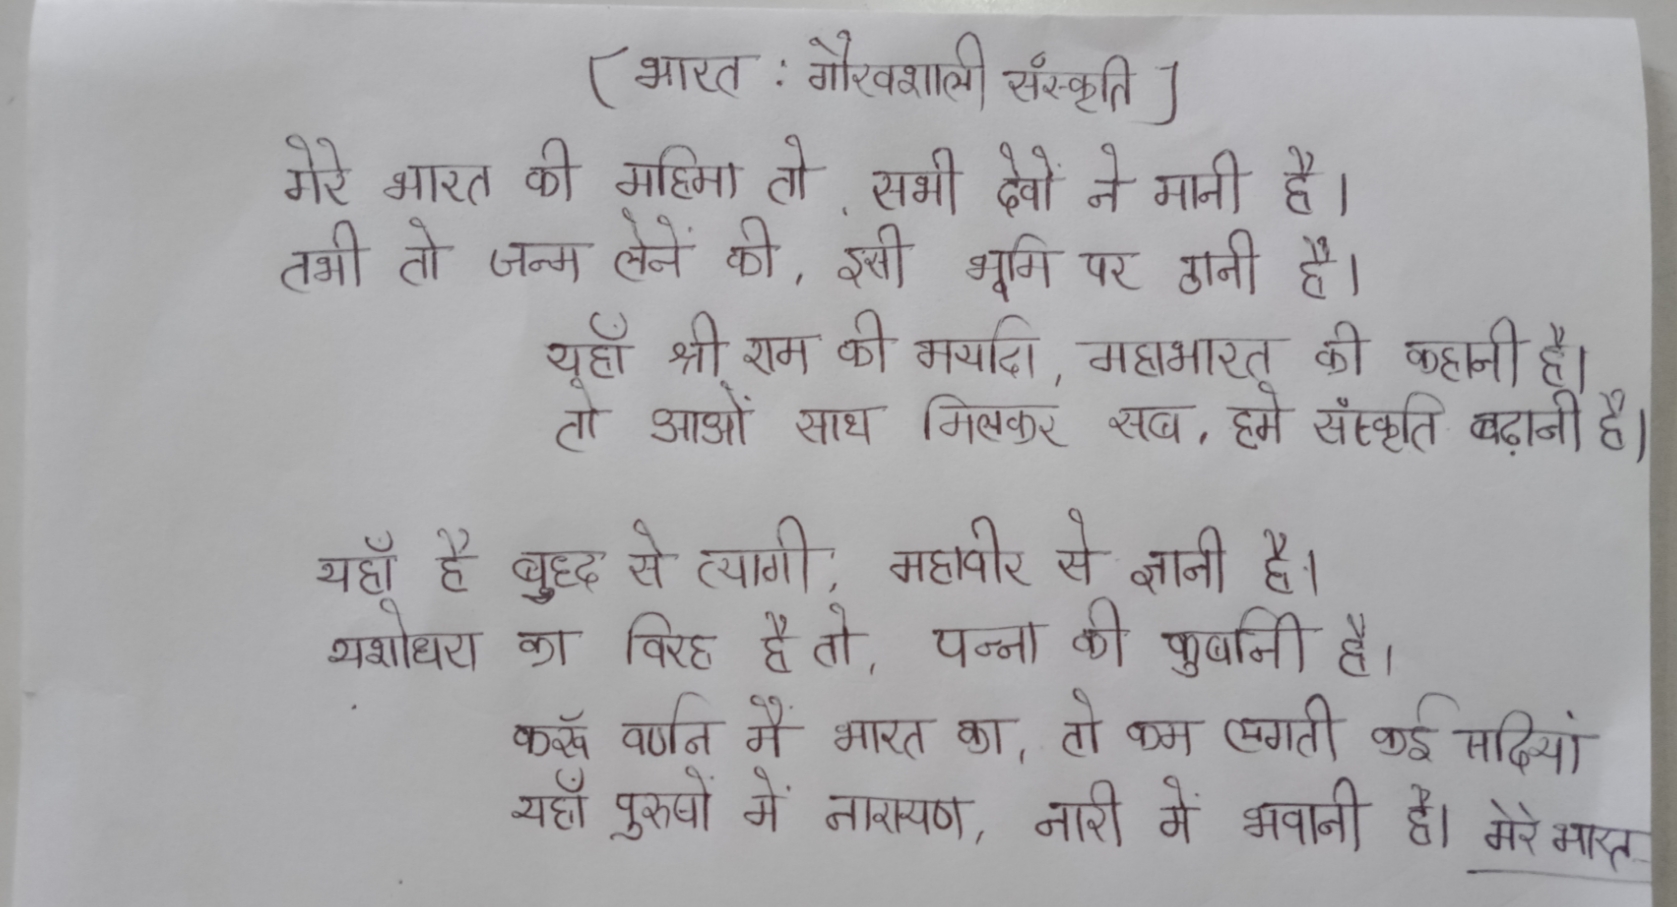 ( भारत : गौरवशाली सँस्कृति )
मेरे भारत की महिमा तो, सभी देवों ने मानी है।
तभी तो जन्म लेनें की, इसी भूमि पर ठानी है।
यहाँ श्री राम की मर्यादा, महाभारत की कहानी है।
तो आओं साथ मिलकर सब, हमे सँस्कृति बढ़ानी है।
यहाँ है बुध्द से त्यागी, महावीर से ज्ञानी है।
यशोधरा का विरह है तो, पन्ना की कुर्बानी है।
करूँ वर्णन मैं भारत का, तो कम लगती कई सदियां
यहाँ पुरुषों में नारायण, नारी में भवानी है। मेरे भारत